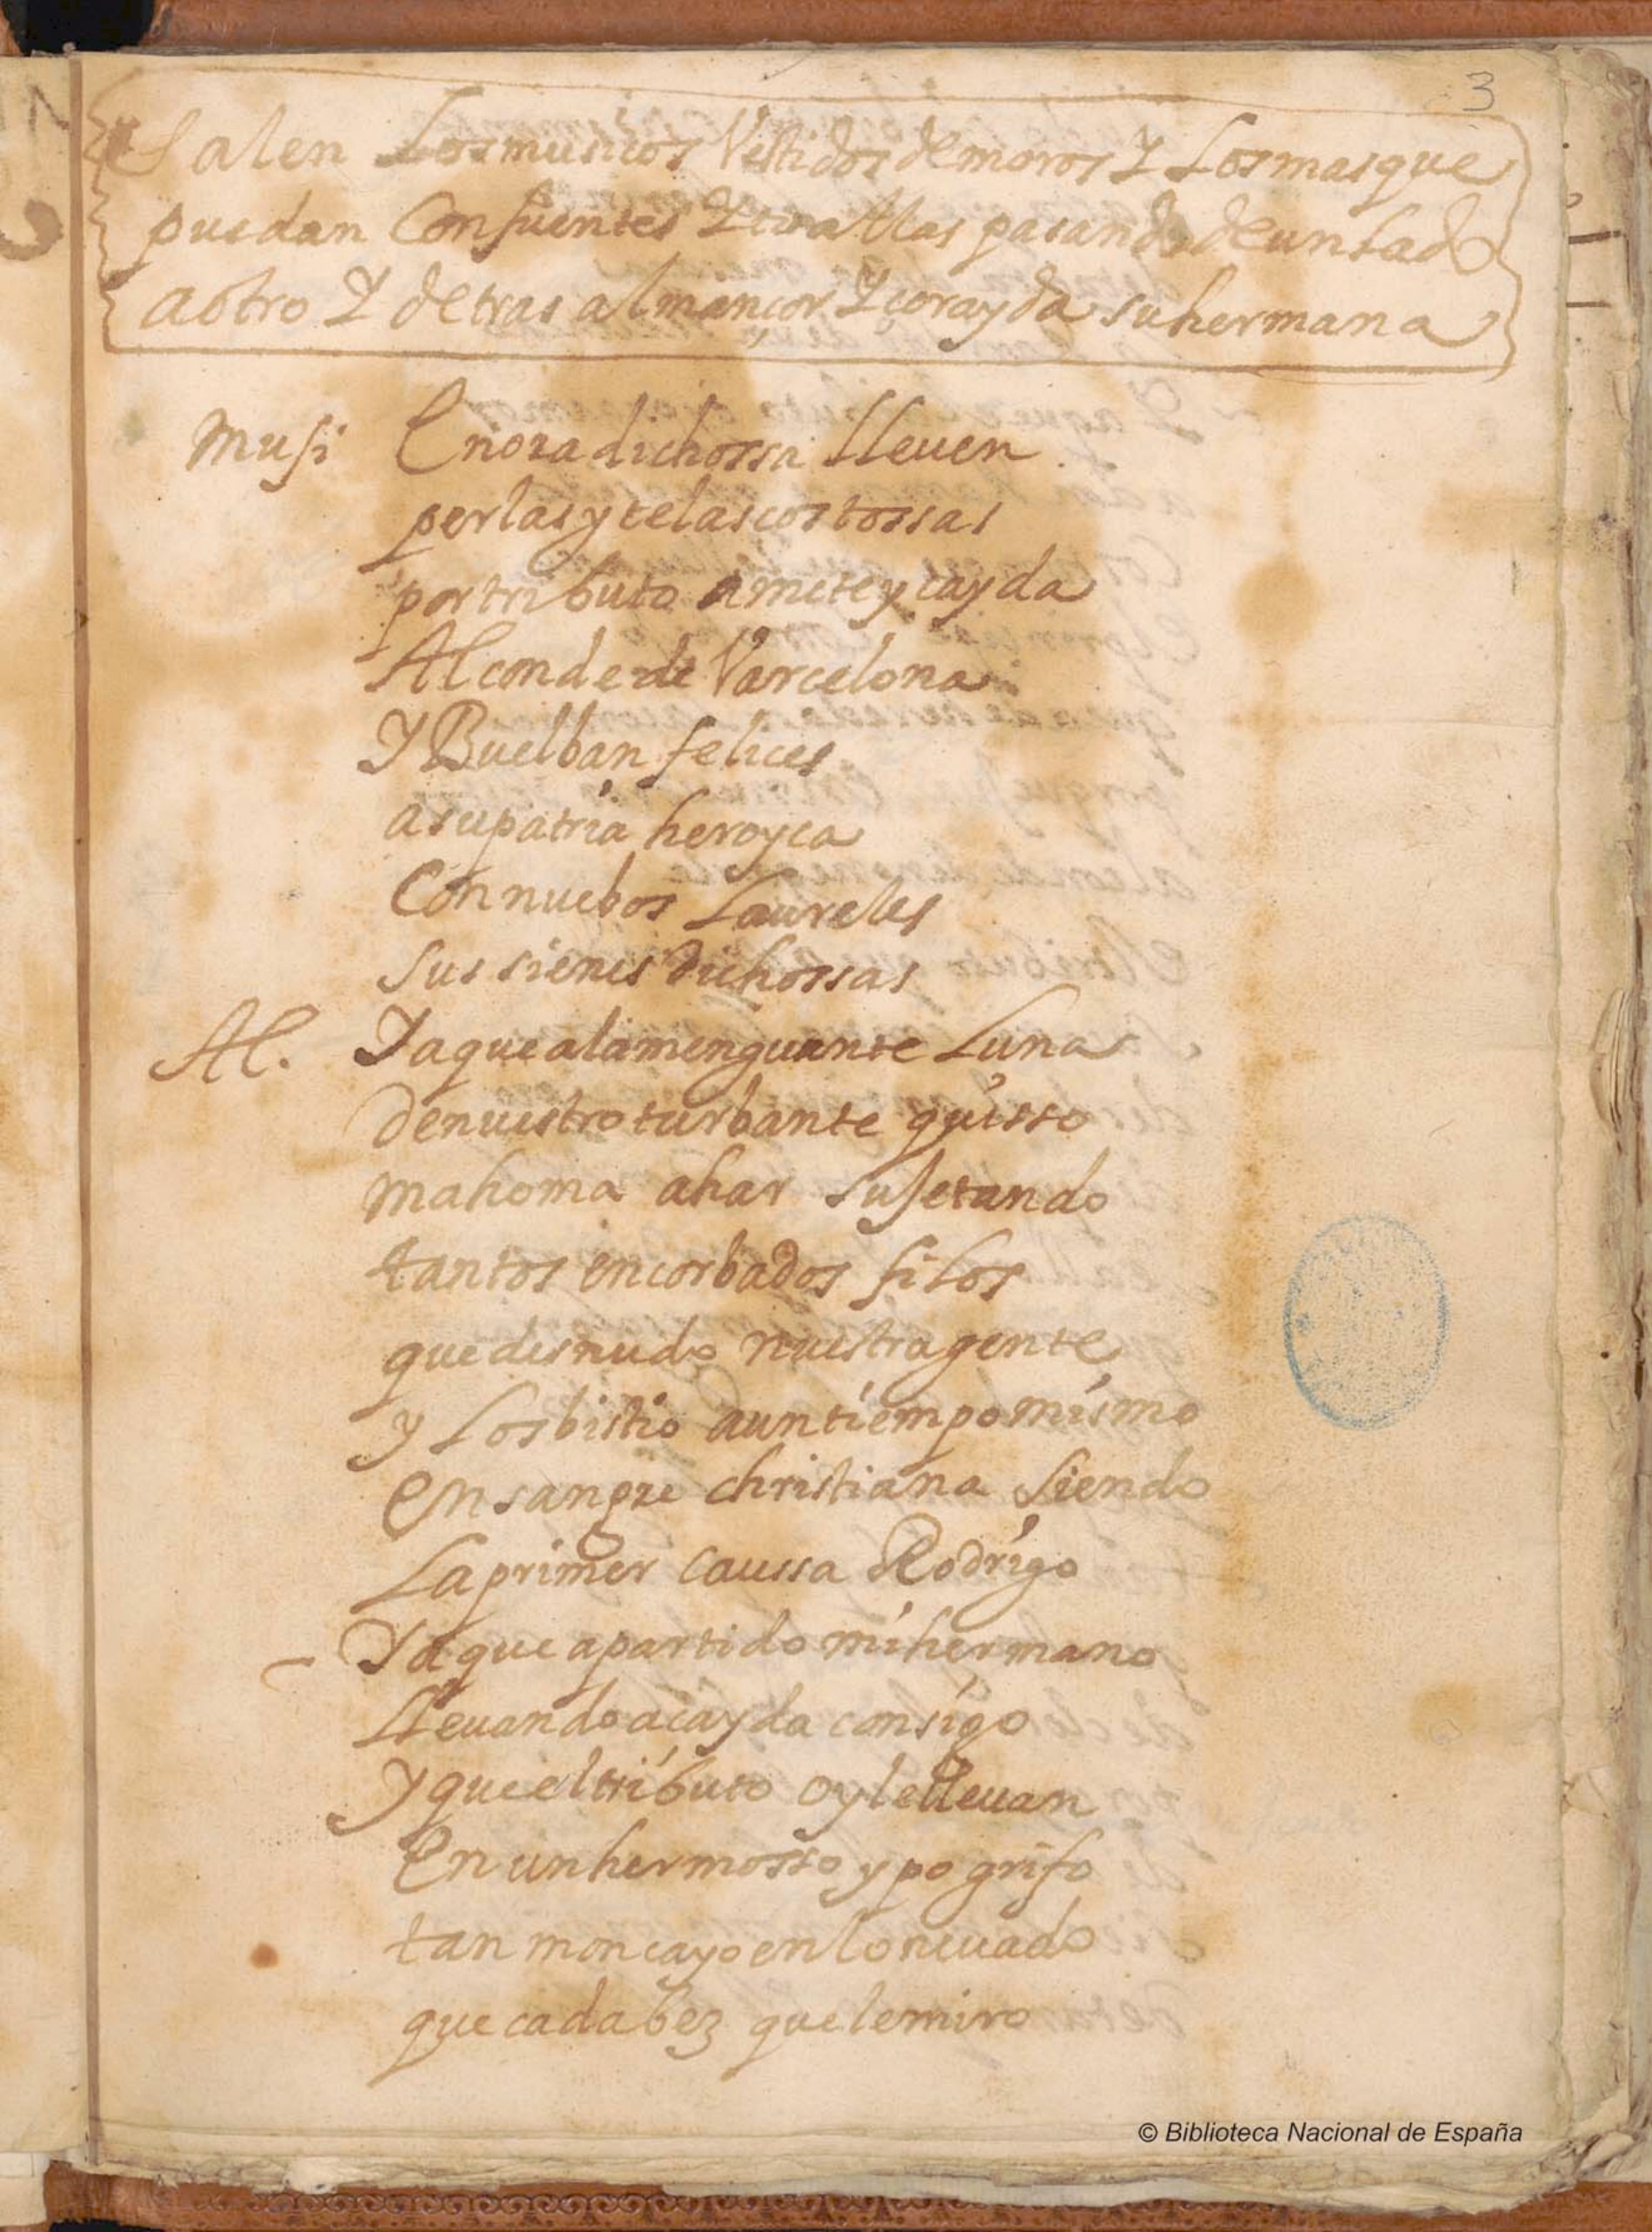 3
Salen Los musicos Vestidos de moros Y Los mas que
puedan Con fuentes Y toallas pasando de un Lado
a otro Y detras almançor Y çorayda su hermana
Musi En ora dichossa LLeuen
perlas y telas costossas
por tributo amete y çayda
Al conde de Varcelona
Y Buelban felices
a su patria heroyca
Con nuebos Laureles
Sus sienes dichossas
Al. Ya que a la menguante Luna
de nuestro turbante quisso
mahoma ahar sujetando
tantos encorbados filos
que desnudo nuestra gente
y Los bistio a un tiempo mismo
En sangre christiana siendo
La primer caussa Rodrigo
Ya que a partido mi hermano
LLeuando a çayda consigo
Y que el tributo oy le lleuan
En un hermosso ypogrifo
tan moncayo en lo neuado
que cada bez que le miro
© Biblioteca Nacional de España